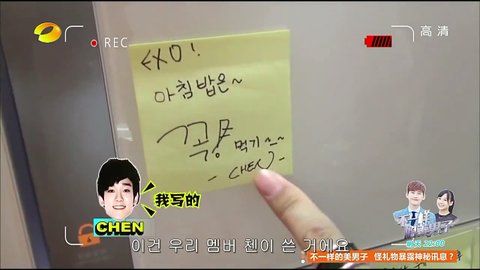 REC
高清
EXO!
아침밥은~
꼭
먹기~~
- CHEN -
我写的
CHEN
이건 우리 멤버 첸이 쓴 거예요
不一样的美男子 怪礼物暴露神秘讯息？